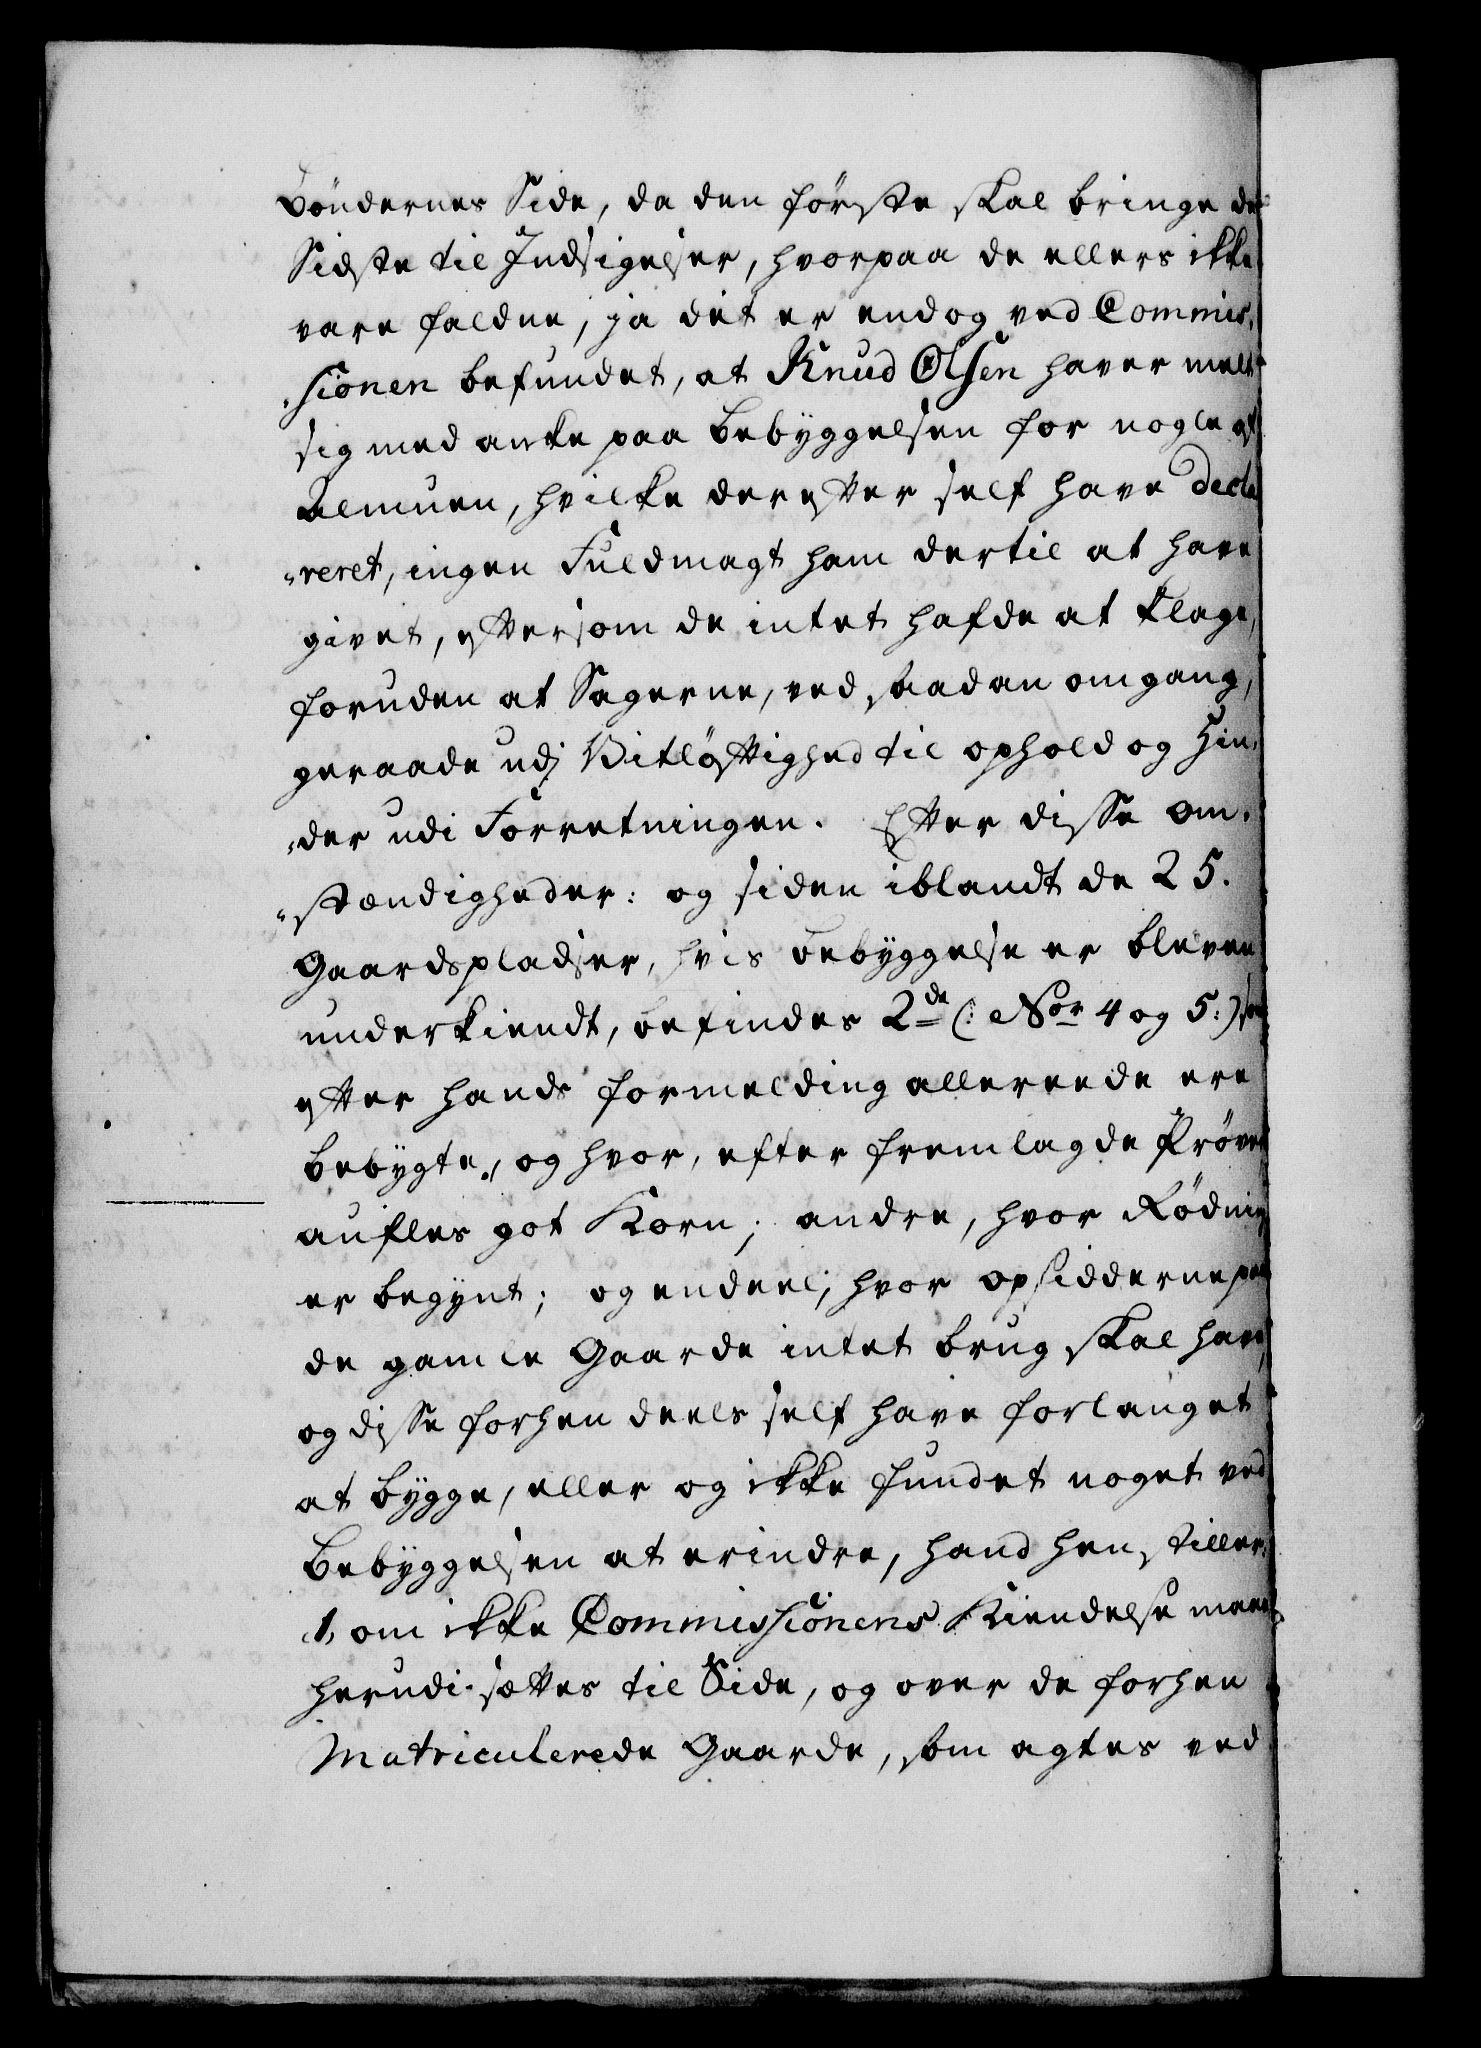 Bøndernes Side, da den første skal bringe de
Sidste til Indsigelser, hvorpaa de ellers ikke
vare faldne, ja det er endog ved Commis,
,sionen befundet, at Knud Olsen haver melt
sig med anke paa Bebyggelsen for nogle af
Almuen, hvilke derefter self have decla
"reret, ingen Fuldmagt ham dertil at have
givet, eftersom de intet hafde at klage,
foruden at Sagerne, ved saadan omgang,
geraade udj Vitløftighed til ophold og Hin,
"der udi Forretningen. Efter disse om,
"stændigheder: og siden iblandt de 25.
Gaardspladser, hvis bebyggelse er bleven
underkiendt, befindes 2de (: Nor 4 og 5:) som
efter hands formelding allereede ere
bebygte, og hvor, efter fremlagde Prøver
aufles got Korn; andre, hvor Rødning
er begynt; og endeel, hvor opsidderne paa
de gamle Gaarde intet brug skal have,
og disse forhen deels self have forlanget
at bygge, eller og ikke fundet noget ved
Bebyggelsen at erindre, hand henstiller:
1, om ikke Commissionens Kiendelse maae
herudi sættes til Side, og over de forhen
Matriculerede Gaarde, som agtes ved